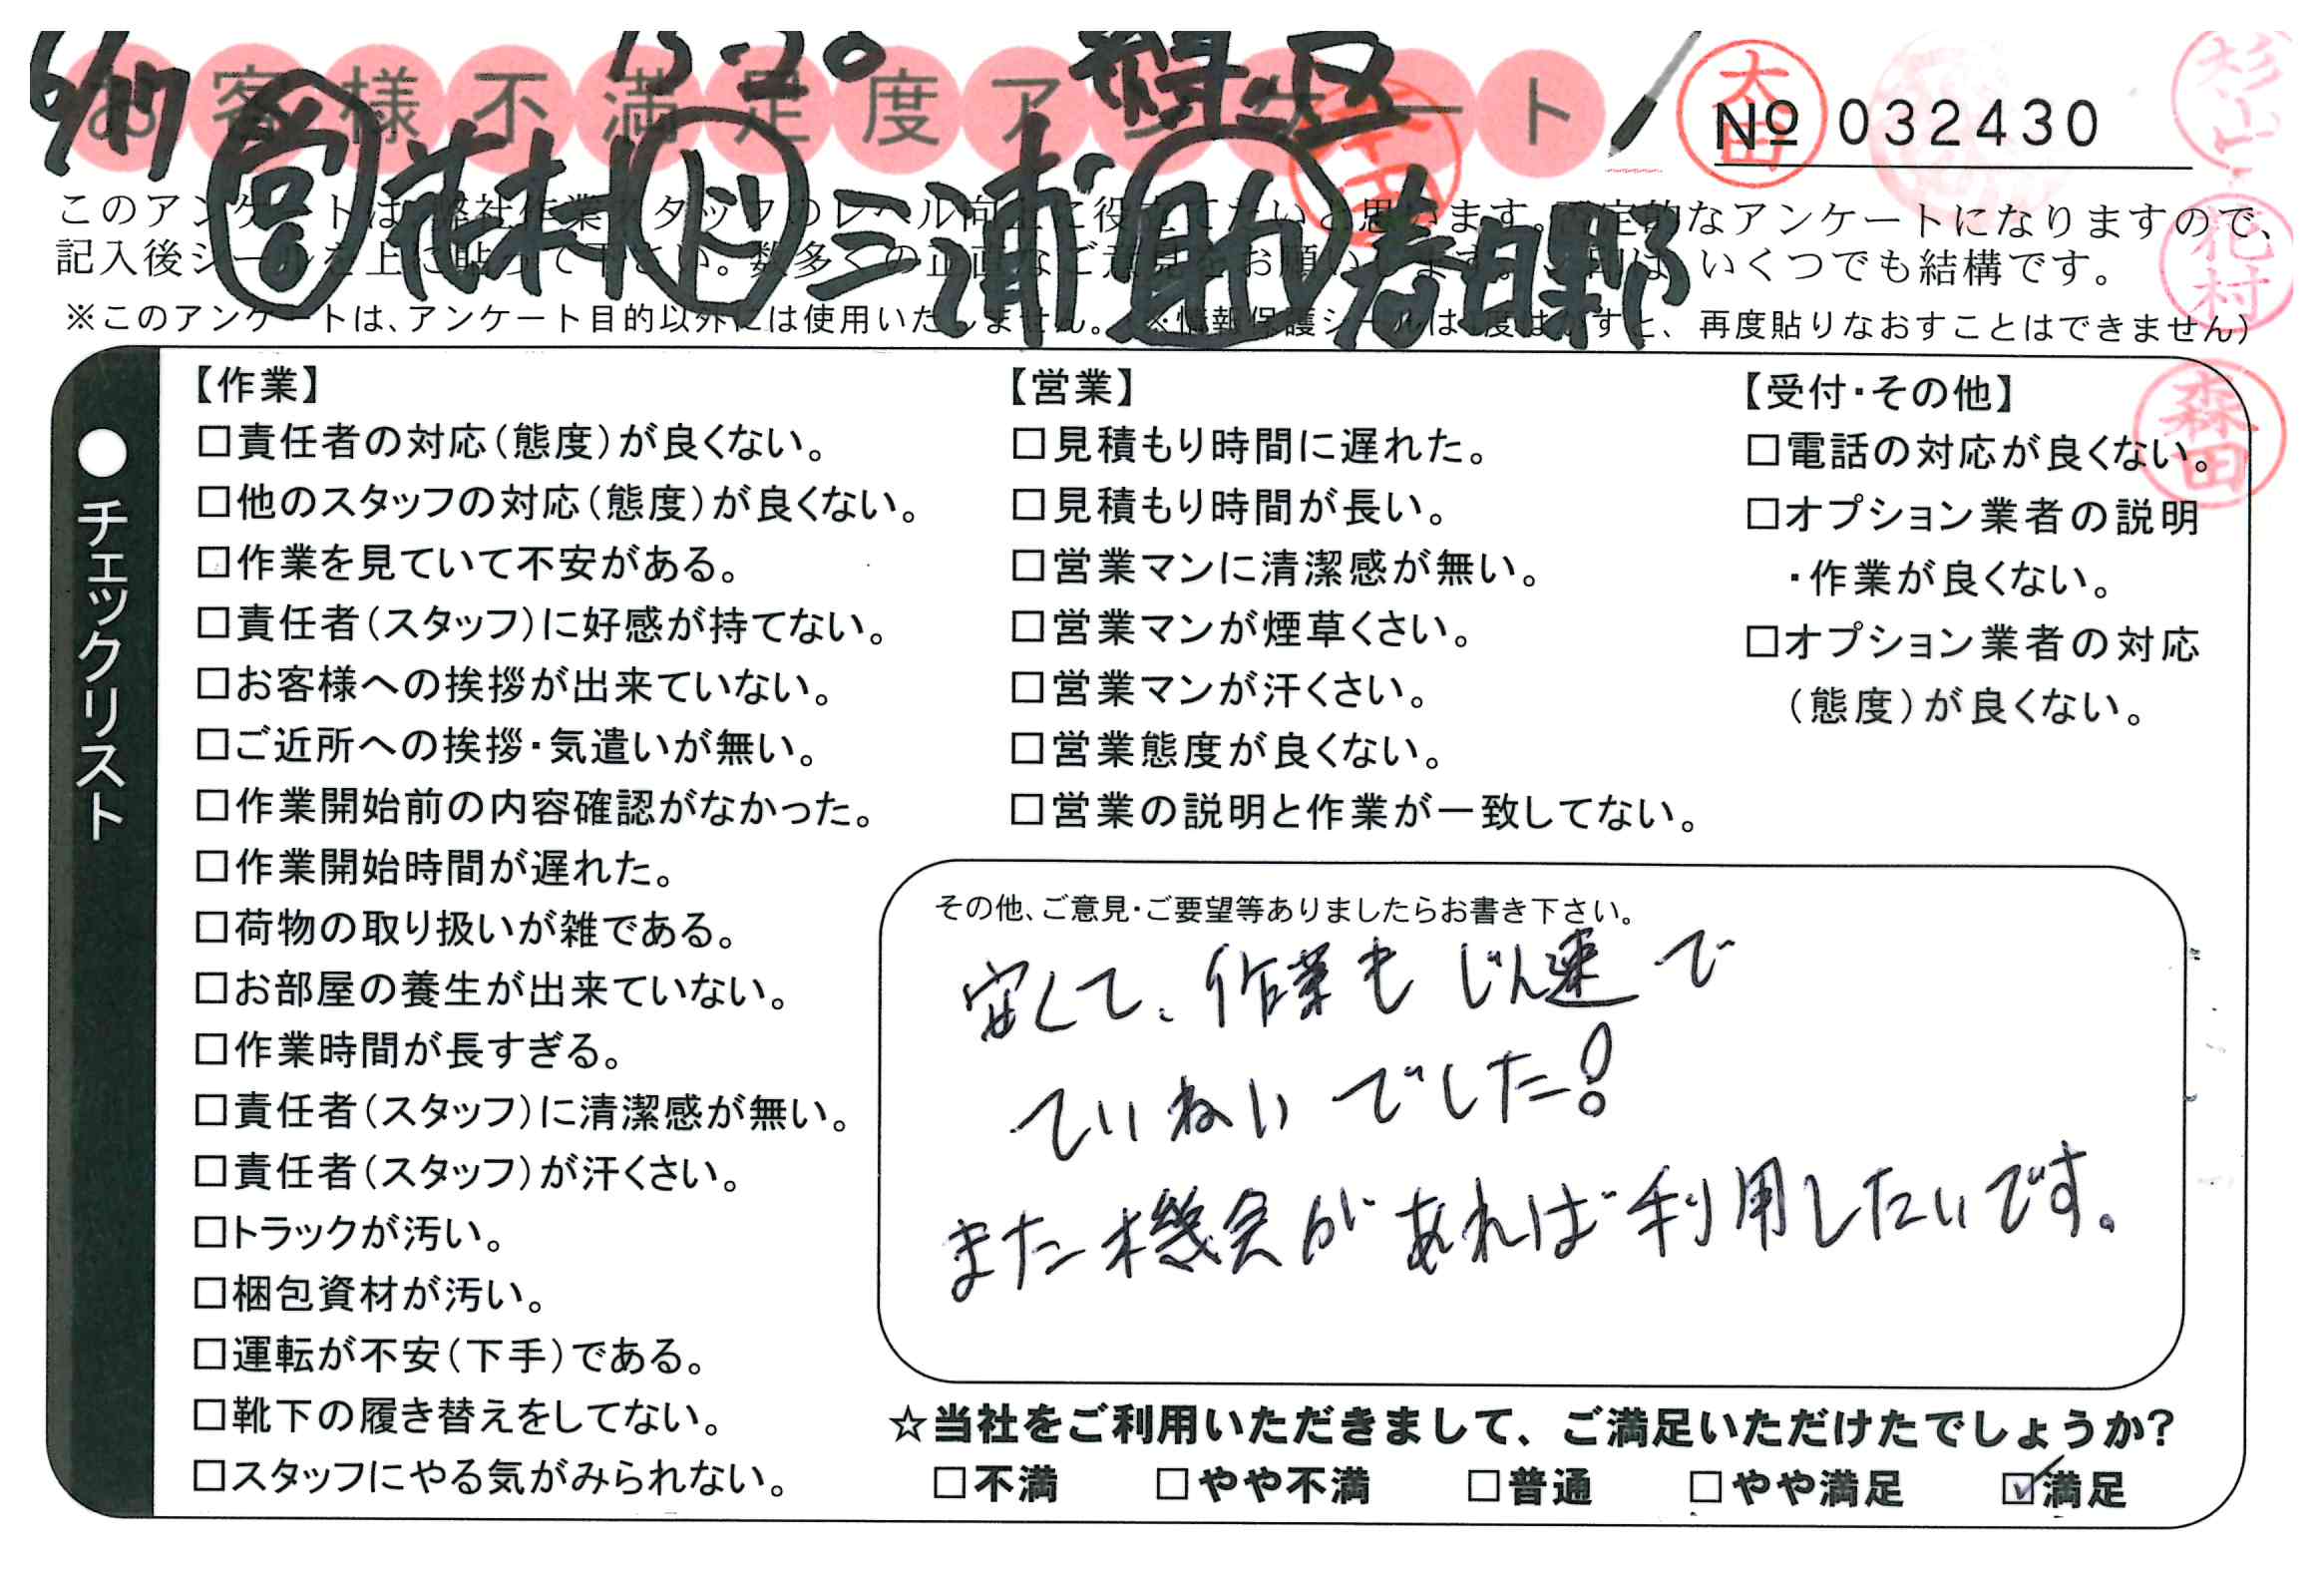 6/17 13-20
お客様不満足度アンケート
太田
№ 032430
杉山
営 花村 ド 三浦 助 春日野
このアンケートは、弊社作業スタッフのレベル向上に役立てたいと思います。否定的なアンケートになりますので、
記入後シールを上に貼って下さい。数多くの正直なご意見をお願いします。 は、いくつでも結構です。
花村
※このアンケートは、アンケート目的以外には使用いたしません。(※情報保護シールは1度はがすと、再度貼りなおすことはできません)
●チェックリスト
【作業】
□責任者の対応(態度)が良くない。
□他のスタッフの対応(態度)が良くない。
□作業を見ていて不安がある。
□責任者(スタッフ)に好感が持てない。
□お客様への挨拶が出来ていない。
□ご近所への挨拶・気遣いが無い。
□作業開始前の内容確認がなかった。
□作業開始時間が遅れた。
□荷物の取り扱いが雑である。
□お部屋の養生が出来ていない。
□作業時間が長すぎる。
□責任者(スタッフ)に清潔感が無い。
□責任者(スタッフ)が汗くさい。
□トラックが汚い。
□梱包資材が汚い。
□運転が不安(下手)である。
□靴下の履き替えをしてない。
□スタッフにやる気がみられない。
【営業】
□見積もり時間に遅れた。
□見積もり時間が長い。
□営業マンに清潔感が無い。
□営業マンが煙草くさい。
□営業マンが汗くさい。
□営業態度が良くない。
□営業の説明と作業が一致してない。
【受付・その他】
森田
□電話の対応が良くない。
□オプション業者の説明
・作業が良くない。
□オプション業者の対応
(態度)が良くない。
その他、ご意見・ご要望等ありましたらお書き下さい。
安くて、作業もじん速で
ていねいでした!
また機会があれば利用したいです。
☆当社をご利用いただきまして、ご満足いただけたでしょうか?
□不満 □やや不満 □普通 □やや満足 ☑満足